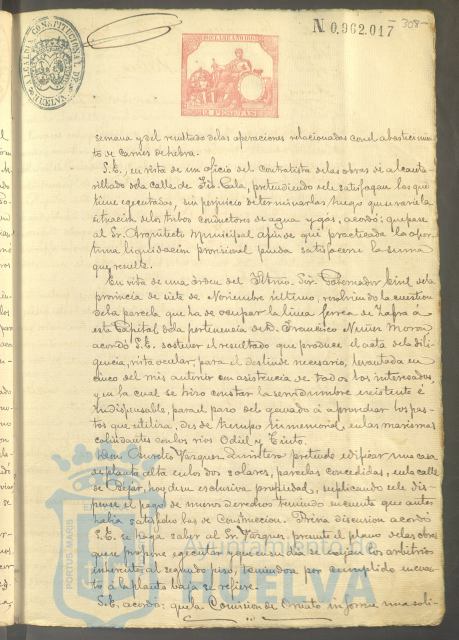 N 0.962.017
308
ALCALDIA CONSTITUCIONAL DE HUELVA
semana y del resultado de las operaciones relacionadas con el abastecimien
to de carnes de hebra.
S. E., en vista de un oficio del Contratista de las obras de alcanta-
rillado de la calle de pretendiendo se le satisfagan las que
tiene ejecutadas, sin perjuicio de terminarlas luego que se varíe la
situación de los tubos conductores de agua y gas, acordó: que pase
al Sr. Arquitecto Municipal a fin de que practicada la opor-
tuna liquidación provisional pueda satisfacerse la suma
que resulte.
En vista de una órden del Iltmo. Sr. Gobernador Civil de la
provincia de siete de Noviembre último, resolviendo la cuestión
de la parcela que ha de ocupar la línea férrea de Zafra á
esta Capital de la pertenencia de D. Francisco Nuñez
acordó S. E. sostener el resultado que produce el acta de la dili-
gencia, vista ocular, para el deslinde necesario, levantada en
cinco del mes anterior con asistencia de todos los interesados,
y en la cual se hizo constar la servidumbre existente é
indispensable, para el paso del ganado á aprovechar los pas-
tos que utiliza, desde tiempo inmemorial, en las marismas
colindantes con los rios Odiel y Tinto.
Don Aurelio Vazquez pretende edificar una casa
de planta alta en los dos solares, parcelas concedidas, en la calle
de Bejar, hoy de su exclusiva propiedad, suplicando se le dis-
pense el pago de nuevos derechos teniendo en cuenta que antes
había satisfecho los de Construccion. Prévia discusion acordó
S. E. se haga saber al Sr. Vazquez, presente el plano de las obras
que se propone ejecutar y que en su día se exijan los arbitrios
inherentes al segundo piso, teniéndose por cumplido en cuan-
to á la planta baja se refiere.
S. E. acordó: que la Comision de Ornato informe una soli-
Ayuntamiento de
HUELVA
PORTUS MARIS